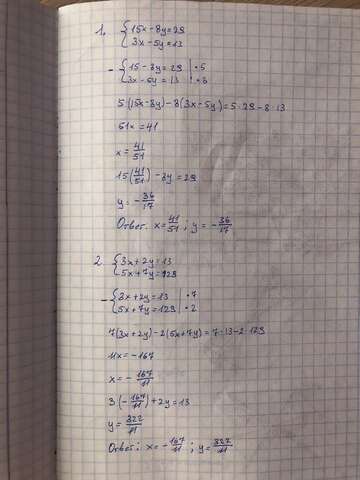 1. { 15x - 8y = 29
3x - 5y = 13
- { 15 - 8y = 29 | • 5
3x - 5y = 13 | • 8
5(15x - 8y) - 8(3x - 5y) = 5 · 29 - 8 · 13
51x = 41
x = 41/51
15(41/51) - 8y = 29
y = - 36/17
Ответ: x = 41/51 ; y = - 36/17
2 { 3x + 2y = 13
5x + 7y = 129
- { 3x + 2y = 13 | • 7
5x + 7y = 129 | • 2
7(3x + 2y) - 2(5x + 7y) = 7 · 13 - 2 · 129
11x = - 167
x = - 167/11
3(- 167/11) + 2y = 13
y = 322/11
Ответ: x = - 167/11 ; y = 322/11